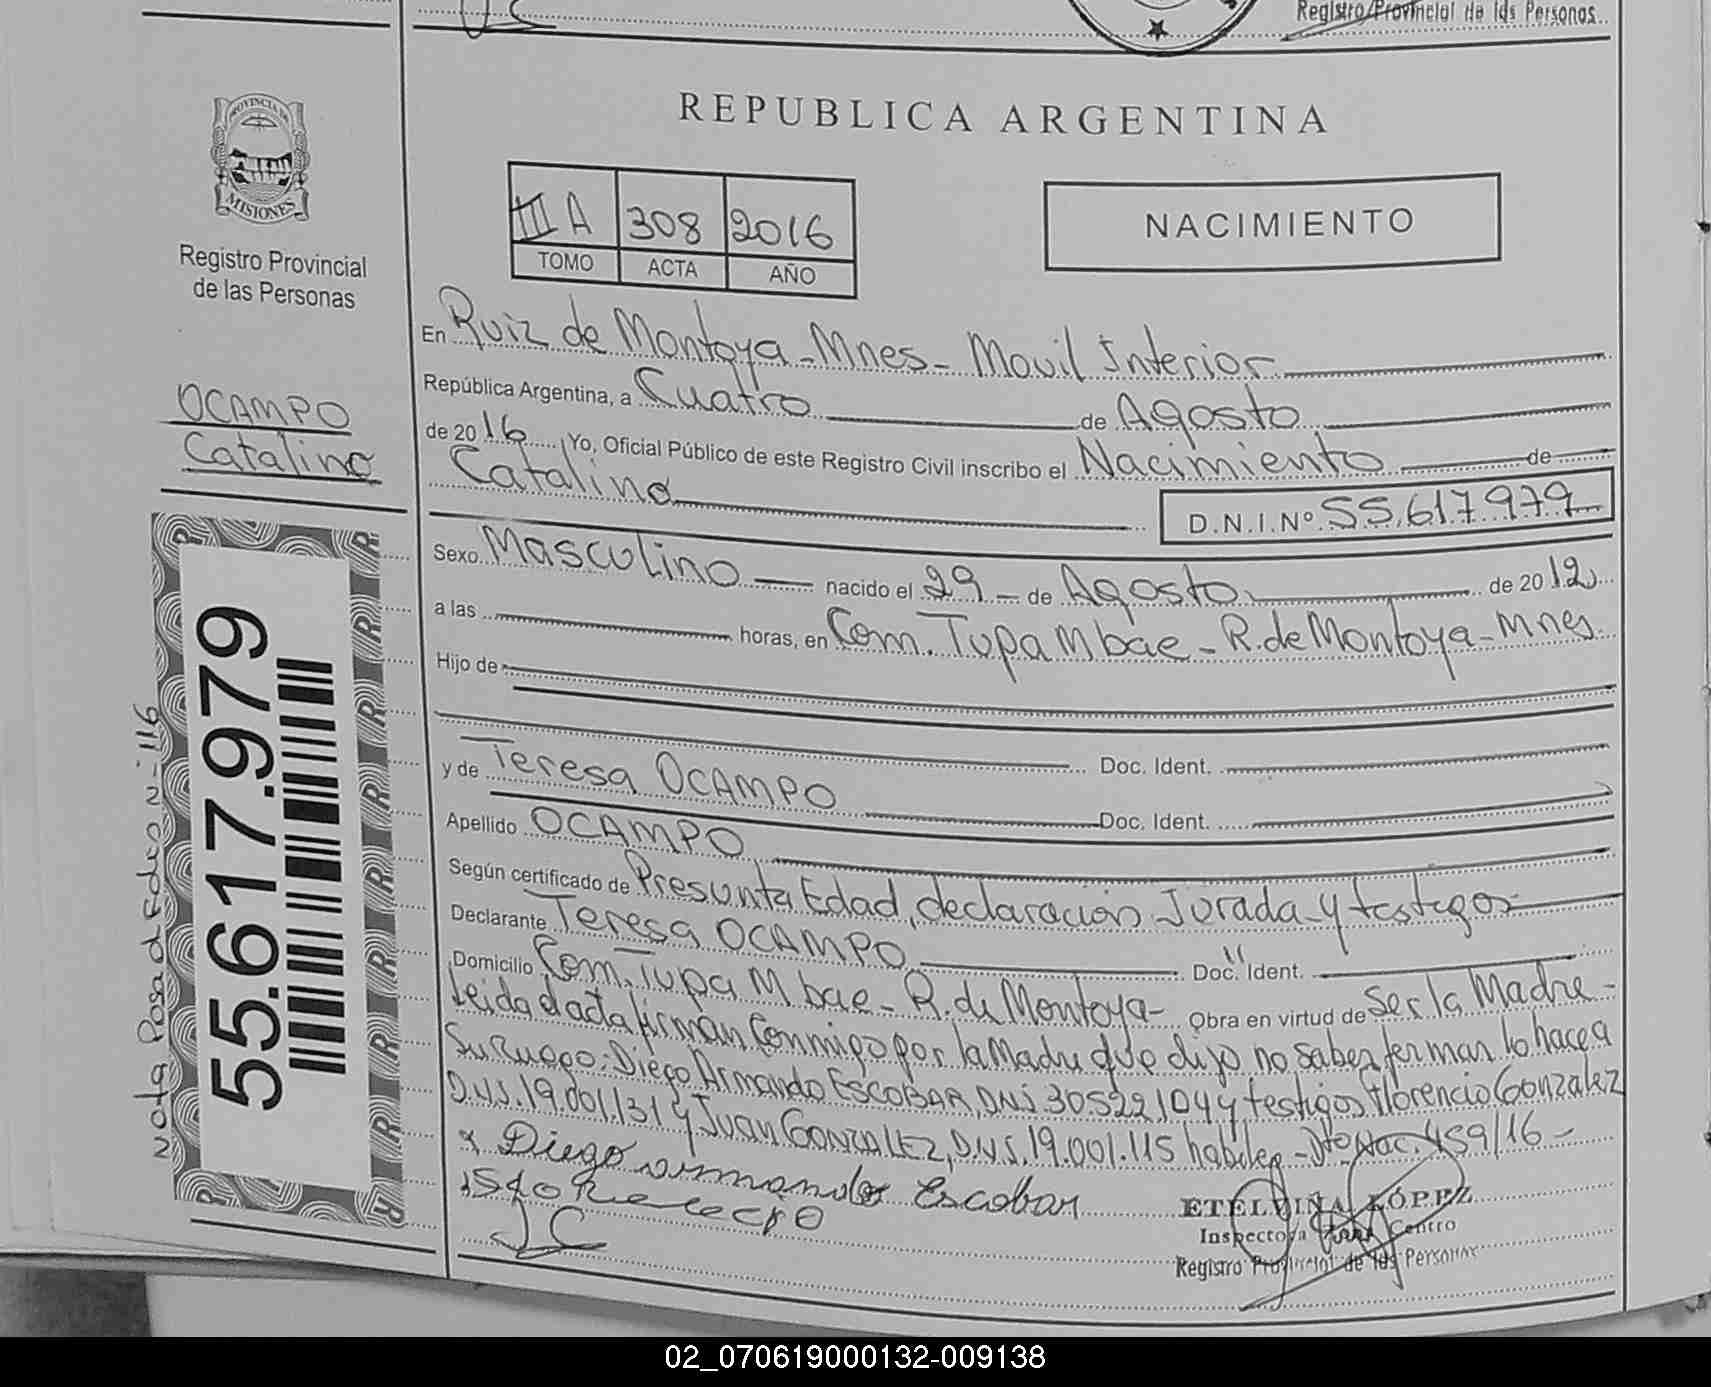 Registro Provincial de las Personas
REPUBLICA ARGENTINA
PROVINCIA DE
MISIONES
Registro Provincial
de las Personas
III A 308 2016
TOMO ACTA AÑO
NACIMIENTO
OCAMPO
Catalino
En Ruiz de Montoya - Mnes - Movil Interior
República Argentina, a Cuatro de Agosto
de 2016 Yo, Oficial Público de este Registro Civil inscribo el Nacimiento de
Catalino
D.N.I.Nº 55.617.979
Sexo Masculino nacido el 29 de Agosto de 2012
a las horas, en Com. Tupa Mbae - R. de Montoya - Mnes.
Hijo de
Doc. Ident.
y de Teresa OCAMPO Doc. Ident.
Apellido OCAMPO
Según certificado de Presunta Edad, declaración Jurada y testigos
Declarante Teresa OCAMPO Doc. Ident.
Domicilio Com. Tupa Mbae - R. de Montoya - Obra en virtud de Ser la Madre -
Leida el acta firman Conmigo por la Madre que dijo no saber fermar lo hace a
Su Ruego: Diego Armando ESCOBAR, DNI 30522104 y testigos Florencio Gonzalez
D.N.I. 19.001.131 y Juan GONZALEZ, D.N.I. 19.001.115 habiles - Dto Nac. 459/16 -
x Diego armando Escobar
J C
ETELVINA LÓPEZ
Inspectora Zona Centro
Registro Provincial de las Personas
55.617.979
Nota Posad Folio N- 116
02_070619000132-009138